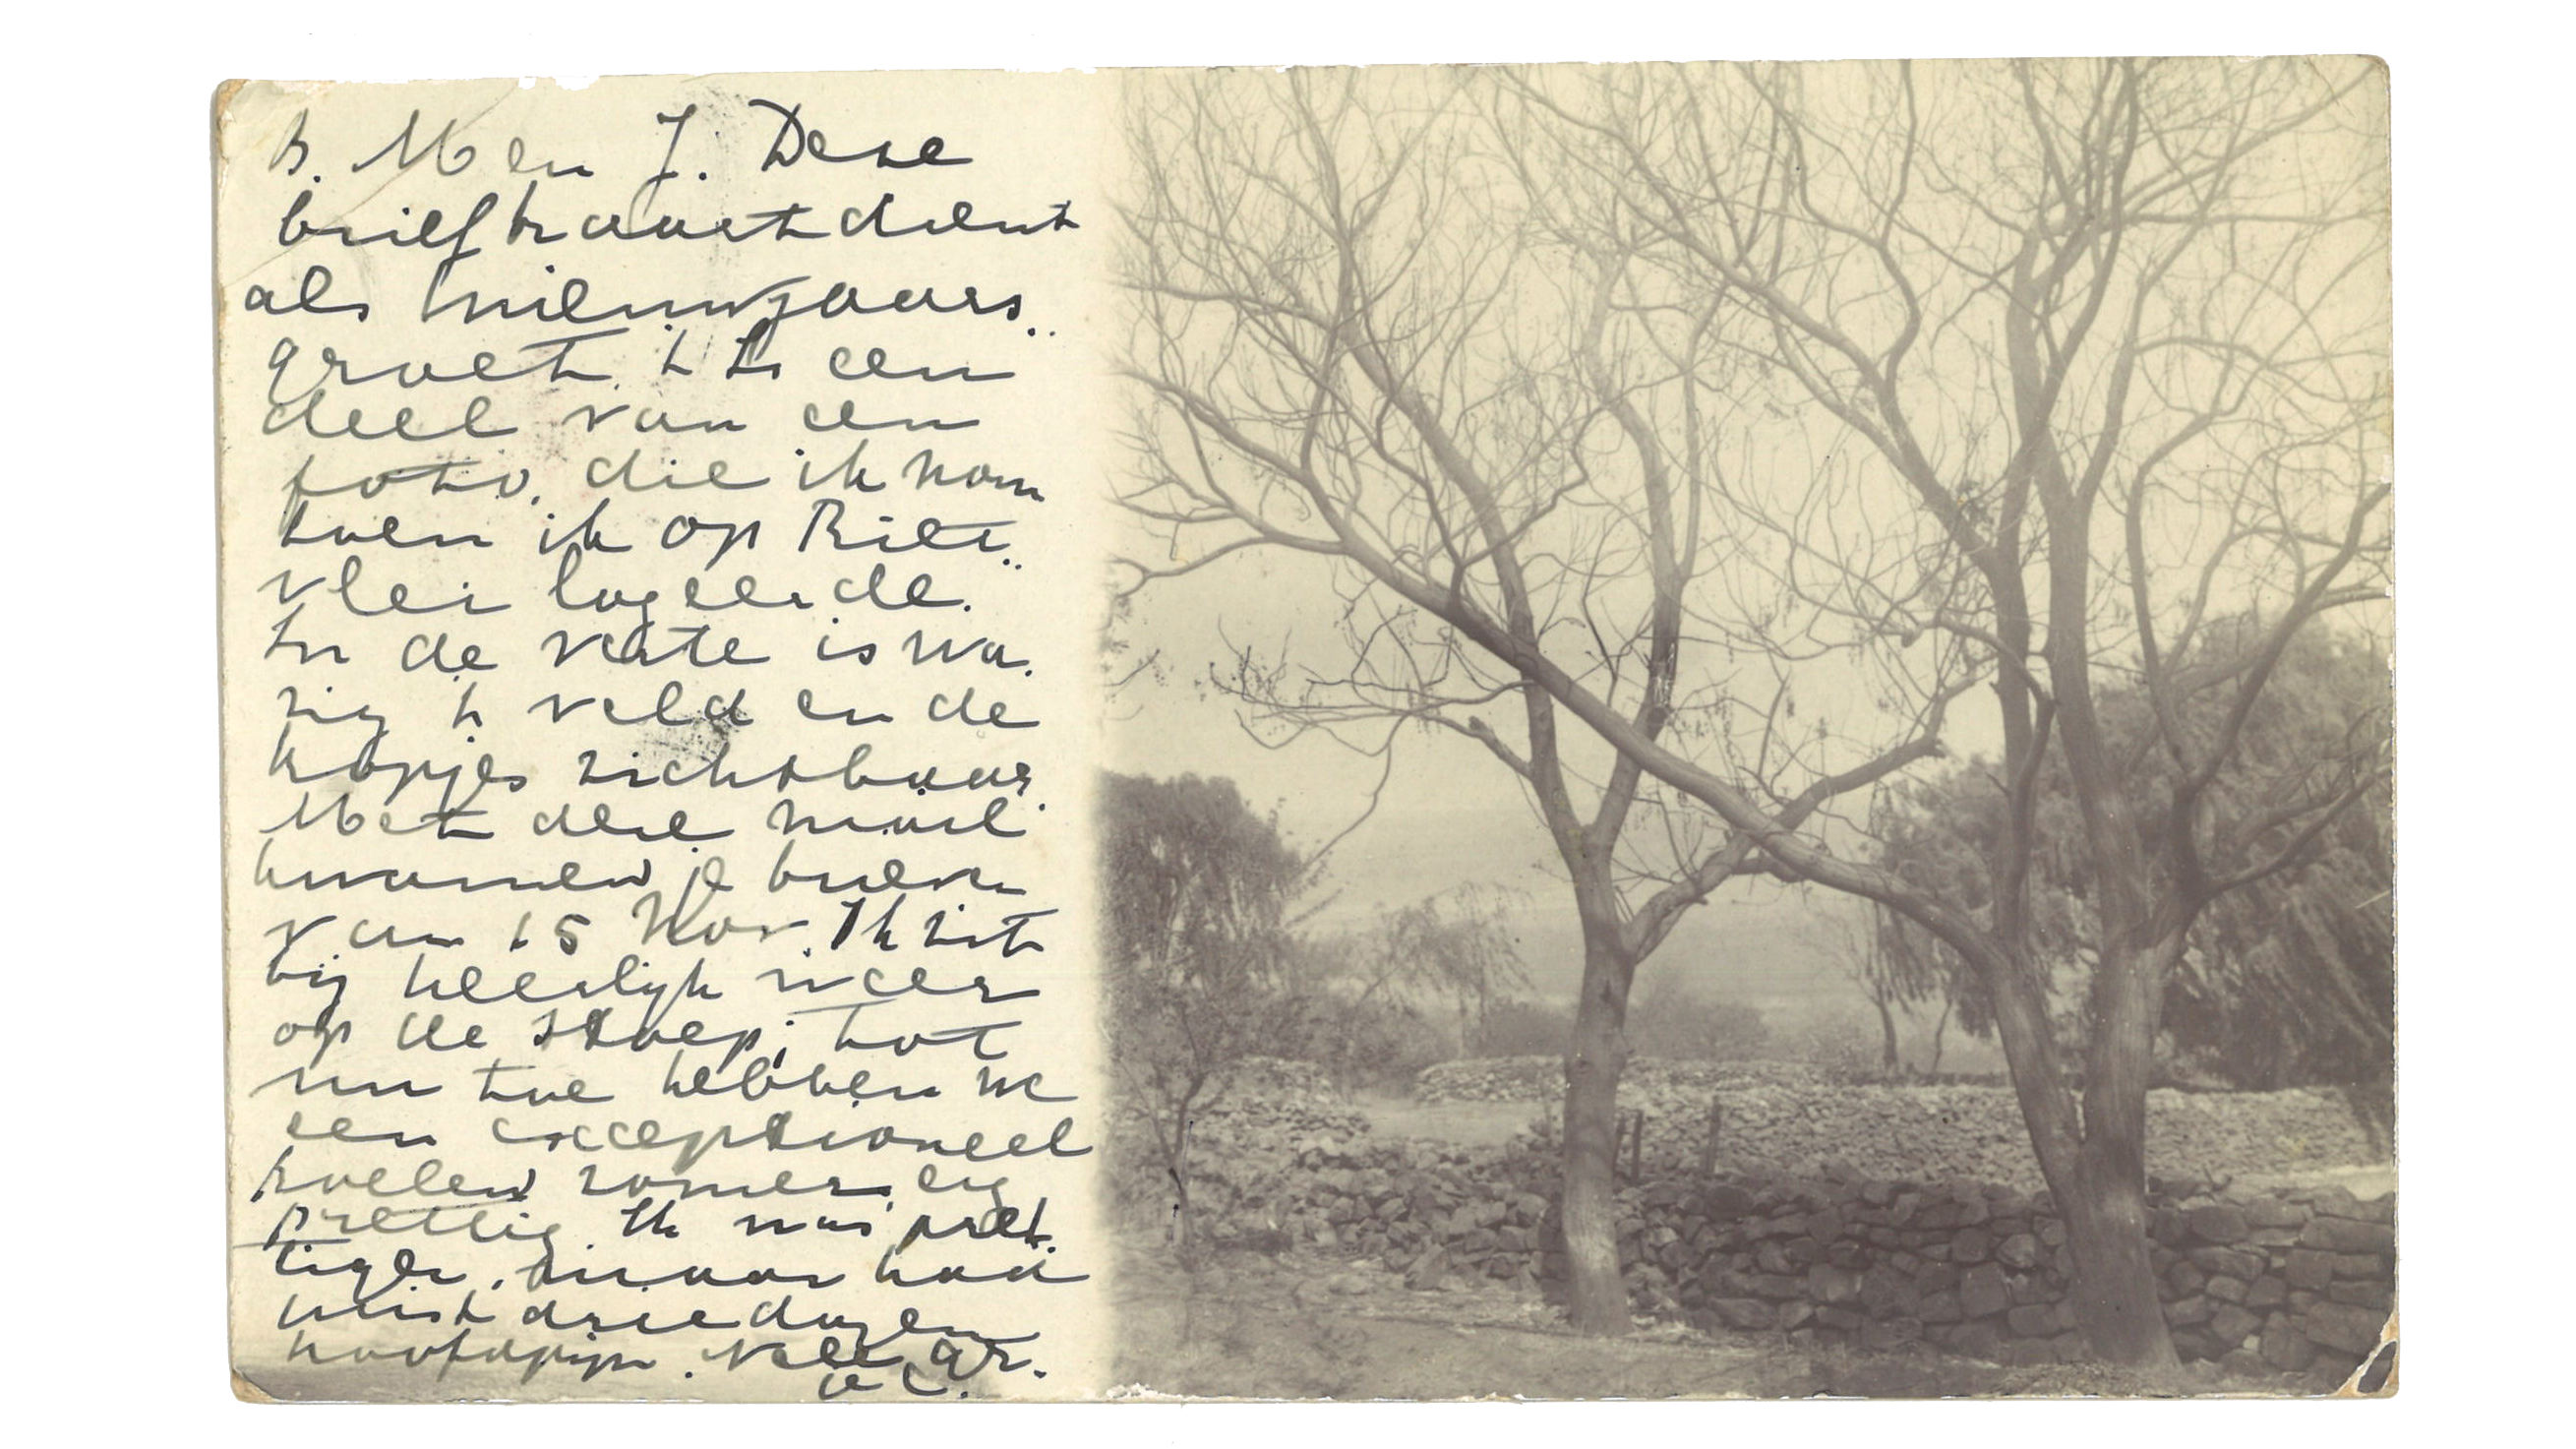 B. M en J. Deze
briefkaart dient
als Nieuwjaars..
groet. t Is een
deel van een
foto, die ik nam
toen ik op Riet..
vlei logeerde.
In de verte is wa.
zig t veld en de
kopjes zichtbaar.
Met deze mail
kwamen je brieven
van 15 Nov. Ik zit
bij heerlijk weer
op de stoep; tot
nu toe hebben we
een exceptioneel
koelen zomer, erg
prettig. Ik was pret.
tiger, maar had
juist drie dagen
hoofdpijn. Vele gr.